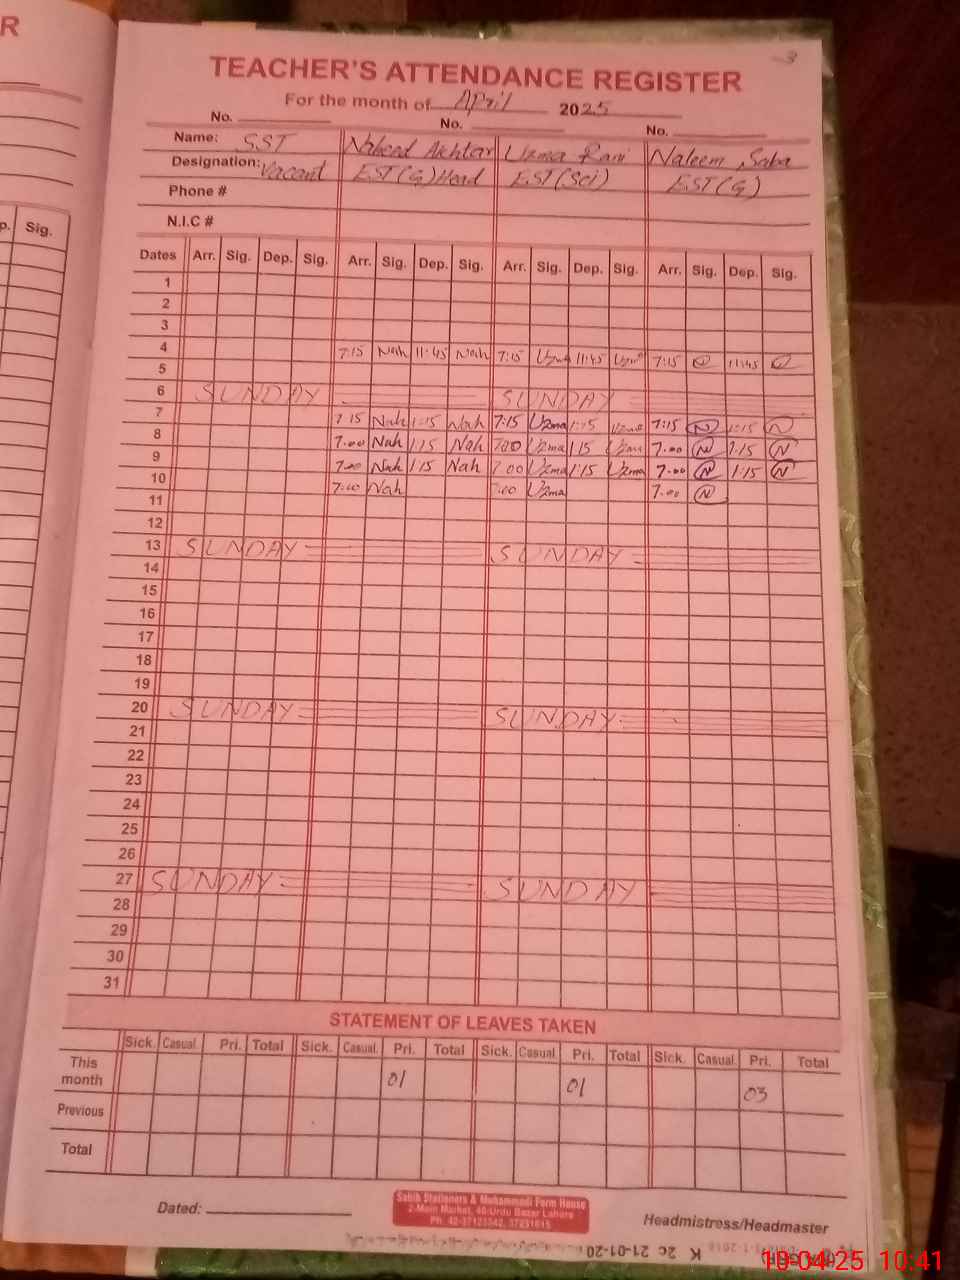 R
3
TEACHER'S ATTENDANCE REGISTER
For the month of April 2025
No. No. No.
Name: SST Naheed Akhtar Uzma Rani Naleem Saba
Designation: Vacant EST(G)Head EST(Sci) EST(G)
Phone #
N.I.C #
p. Sig.
Dates Arr. Sig. Dep. Sig. Arr. Sig. Dep. Sig. Arr. Sig. Dep. Sig. Arr. Sig. Dep. Sig.
1
2
3
4 7:15 Nah 11:45 Nah 7:15 Uzma 11:45 Uzma 7:15 11:45
5
6 SUNDAY SUNDAY
7 7:15 Nah 1:15 Nah 7:15 Uzma 1:15 Uzma 7:15 N 1:15 N
8 7.00 Nah 1:15 Nah 7.00 Uzma 1:15 Uzma 7.00 N 1.15 N
9 7.00 Nah 1:15 Nah 7.00 Uzma 1:15 Uzma 7.00 N 1:15 N
10 7.00 Nah 7.00 Uzma 7.00 N
11
12
13 SUNDAY SUNDAY
14
15
16
17
18
19
20 SUNDAY SUNDAY
21
22
23
24
25
26
27 SUNDAY SUNDAY
28
29
30
31
STATEMENT OF LEAVES TAKEN
Sick. Casual. Pri. Total Sick. Casual. Pri. Total Sick. Casual. Pri. Total Sick. Casual. Pri. Total
This month 01 01 03
Previous
Total
Dated:
Sabih Stationers & Muhammadi Form House
2-Main Market, 40-Urdu Bazar Lahore
Headmistress/Headmaster
K 2c 21-01-20
10-04-25 10:41